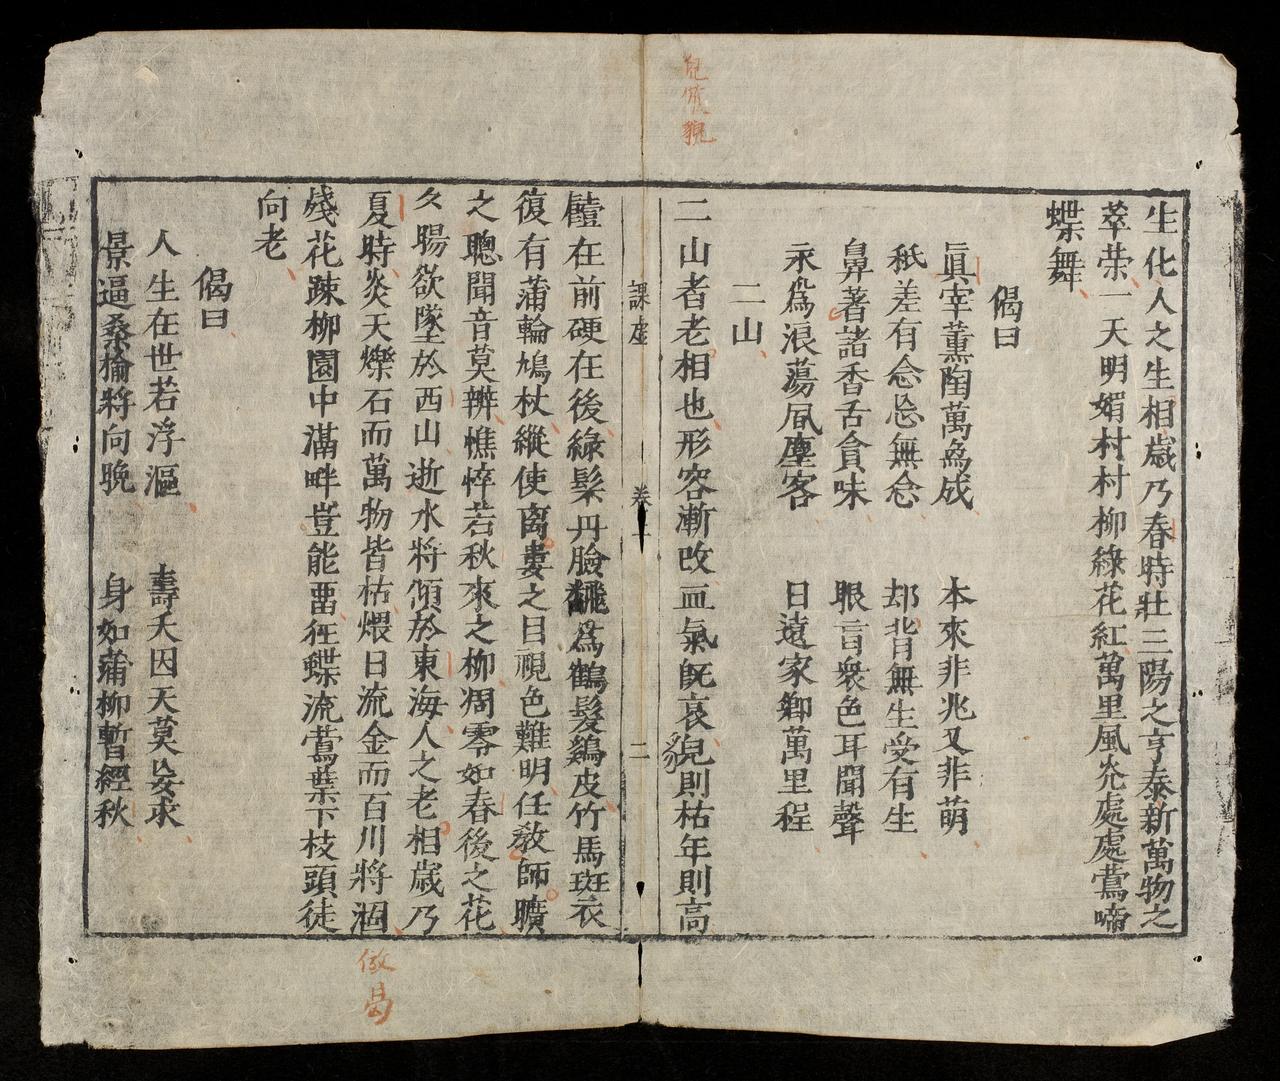 生化人之生相歲乃春時壯三陽之亨泰新萬物之
萃荣一天明媚村村柳綠花紅萬里風光處處鶯啼
蝶舞
偈曰
眞宰薰陶萬爲成 本來非兆又非萌
秖差有念忘無念 却背無生受有生
鼻著諸香舌貪味 眼盲衆色耳聞聲
永爲浪蕩風塵客 日遠家鄉萬里程
二山
二山者老相也形容漸改血氣旣衰皃則枯年則高
饐在前硬在後綠鬂丹臉飜爲鶴髮鷄皮竹馬斑衣
復有蒲輪鳩杖縱使离婁之目視色難明任敎師曠
之聰聞音莫辨憔悴若秋來之柳凋零如春後之花
久腸欲墜於西山逝水將傾於東海人之老相歲乃
夏時炎天爍石而萬物皆枯煨日流金而百川將涸
殘花踈柳園中滿畔豈能畱徃蝶流鶯葉下枝頭徒
向老
偈曰
人生在世若浮漚 壽夭因天莫妄求
景逼桑榆將向晚 身如蒲柳暫經秋
課虛
卷
二
皃
貌
倣